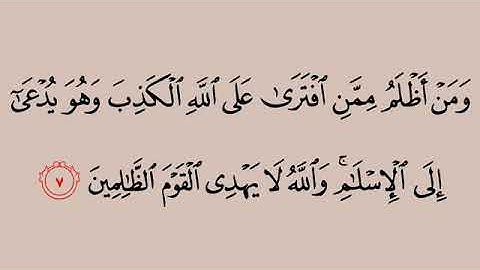 وَمَنۡ أَظۡلَمُ مِمَّنِ ٱفۡتَرَىٰ عَلَى ٱللَّهِ ٱلۡكَذِبَ وَهُوَ يُدۡعَىٰٓ
إِلَى ٱلۡإِسۡلَٰمِۚ وَٱللَّهُ لَا يَهۡدِي ٱلۡقَوۡمَ ٱلظَّٰلِمِينَ ٧